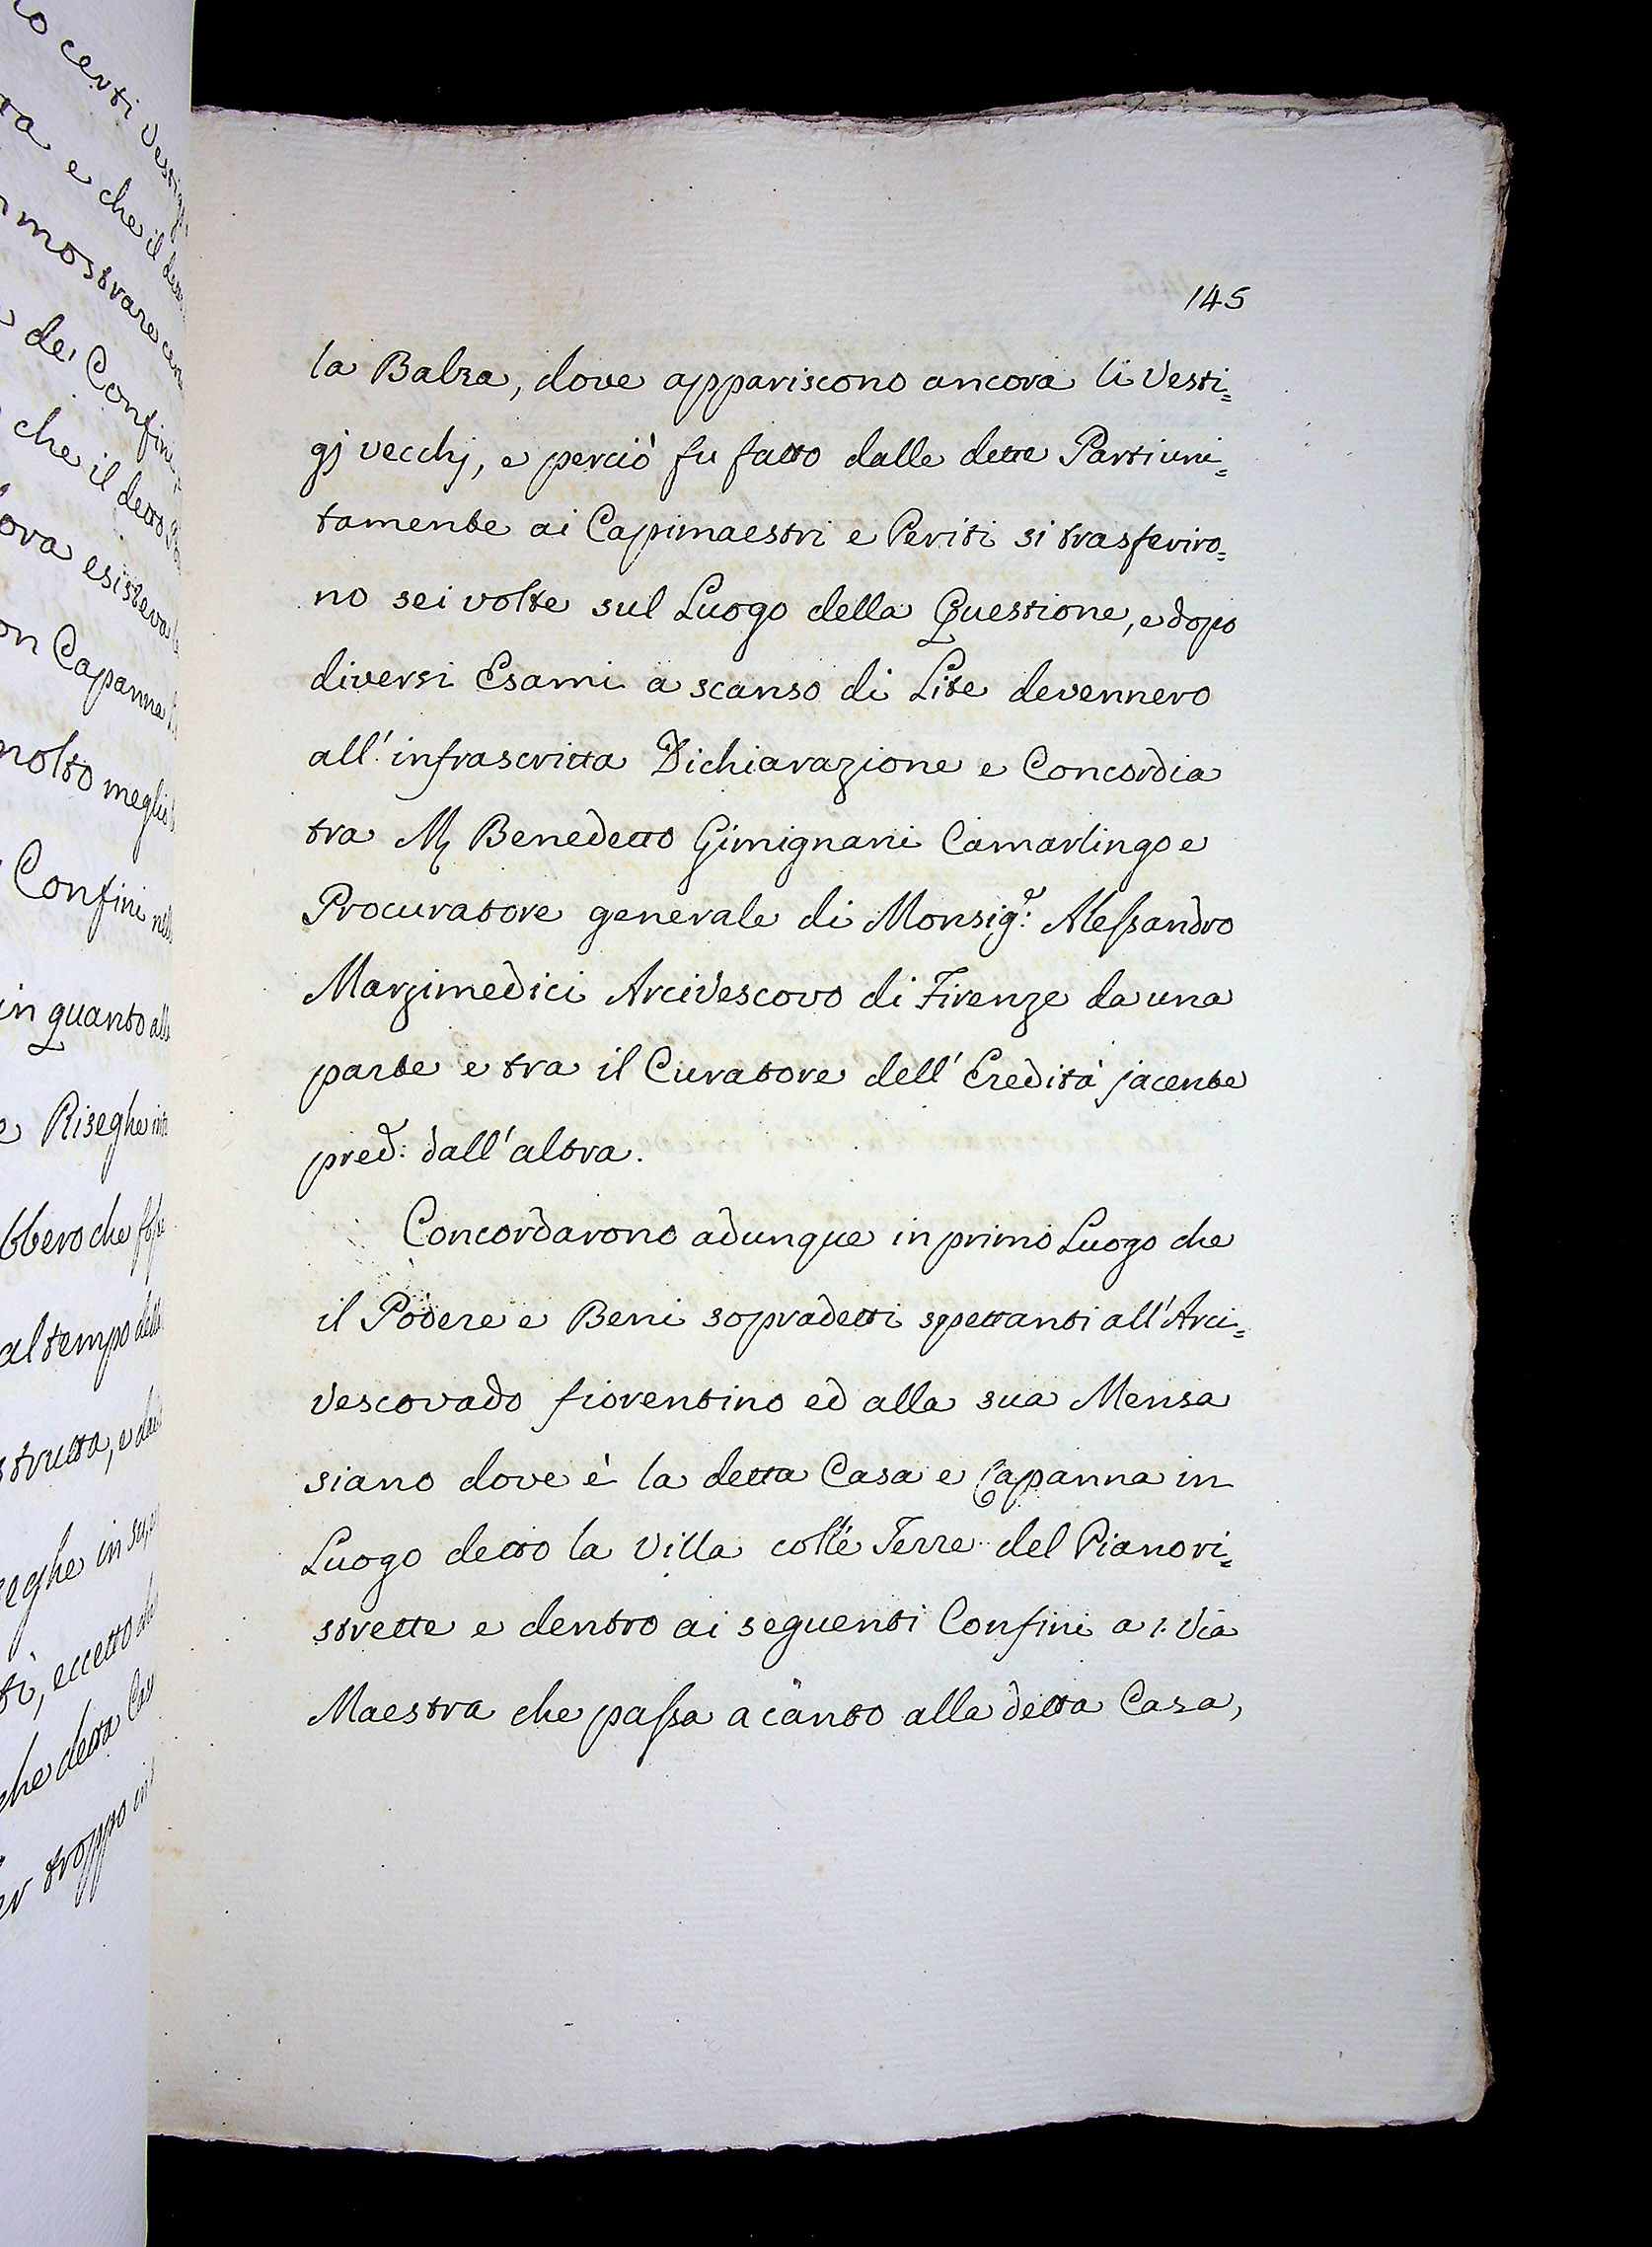 145
la Balza, dove appariscono ancora li Vesti=
gj vecchj, e perciò fu fatto dalle dette Parti uni=
tamente ai Capimaestri e Periti si trasferiro=
no sei volte sul Luogo della Questione, e dopo
diversi Esami a scanso di Lite devennero
all'infrascritta Dichiarazione e Concordia
tra M Benedetto Gimignani Camarlingo e
Procuratore generale di Monsig.r Aleſsandro
Marzimedici ArciVescovo di Firenze da una
parte e tra il Curatore dell'Eredità jacente
pred: dall'altra.
Concordarono adunque in primo Luogo che
il Podere e Beni sopradetti spettanti all'Arci=
Vescovado fiorentino ed alla sua Mensa
siano dove è la detta Casa e Capanna in
Luogo detto la Villa colle Terre del Piano ri=
strette e dentro ai seguenti Confini a 1. Via
Maestra che paſsa acanto alla detta Casa,
certi
e che il
mostrare
de' Confini
che il detto
esisteva
Capanna
molto meglio
Confini
in quanto
Riseghe
che
al tempo
in
eccetto
che detta
troppo